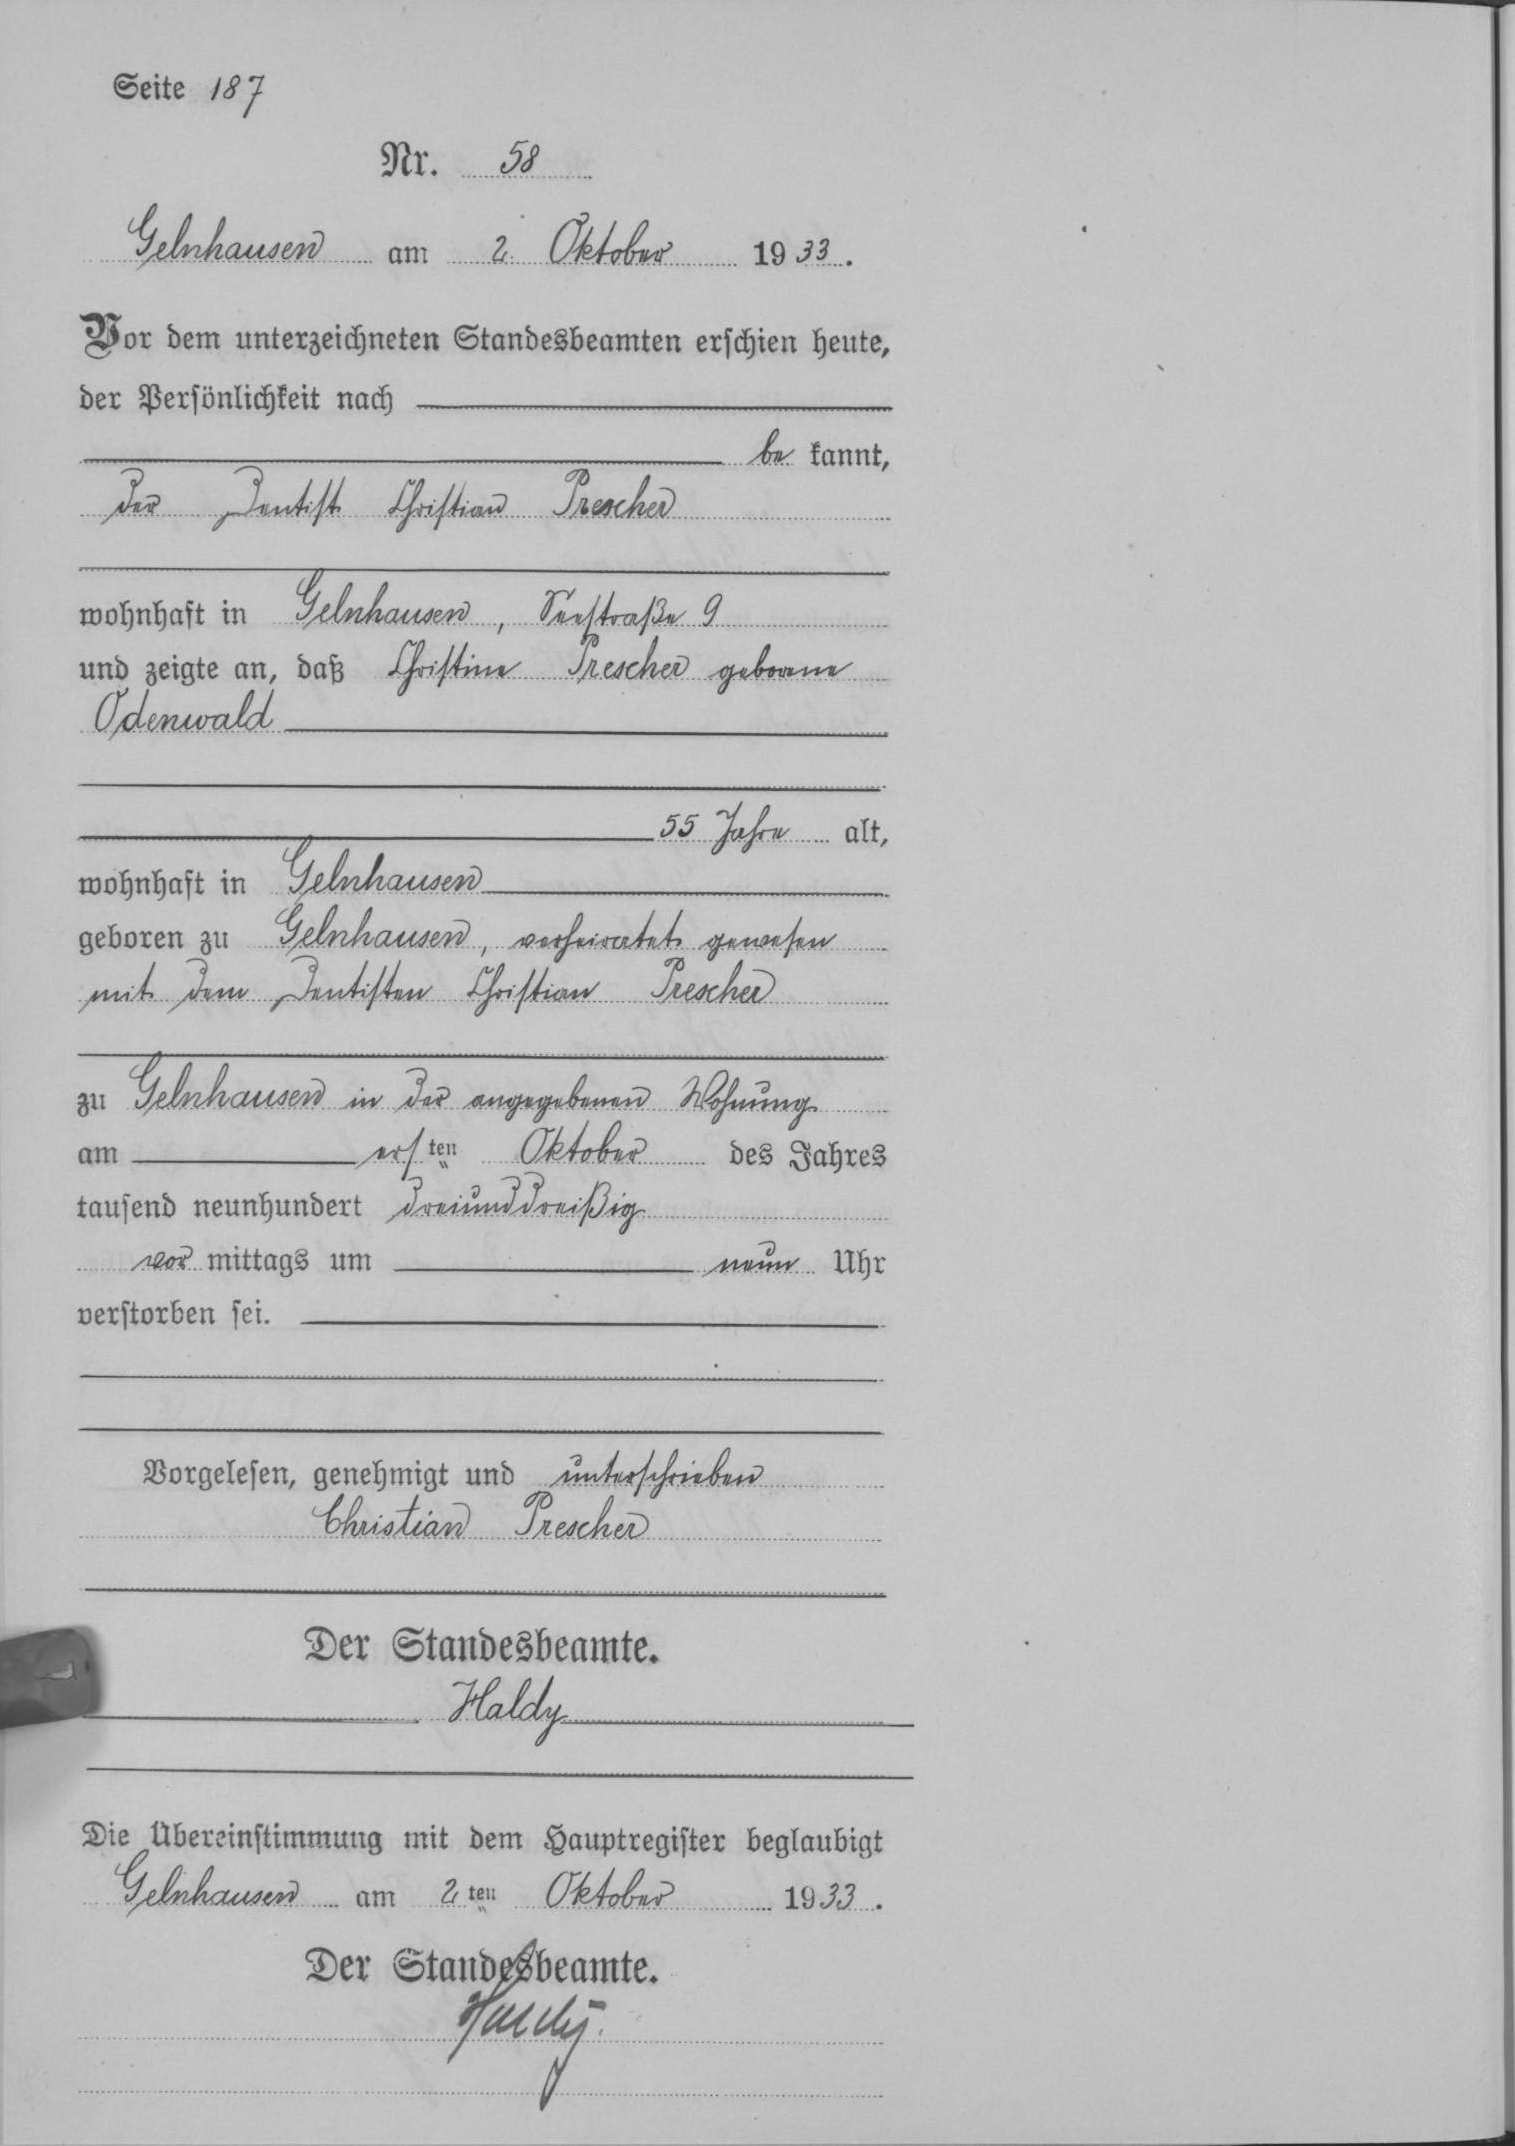 Seite 187
Nr. 58
Gelnhausen am 2. Oktober 1933.
Vor dem unterzeichneten Standesbeamten erschien heute,
der Persönlichkeit nach
be kannt,
der Dentist Christian Prescher
wohnhaft in Gelnhausen, Seestraße 9
und zeigte an, daß Christine Prescher geborene
Odenwald
55 Jahre alt,
wohnhaft in Gelnhausen
geboren zu Gelnhausen, verheiratet gewesen
mit dem Dentisten Christian Prescher
zu Gelnhausen in der angegebenen Wohnung
am ersten Oktober des Jahres
tausend neunhundert dreiunddreißig
vor mittags um neun Uhr
verstorben sei.
Vorgelesen, genehmigt und unterschrieben
Christian Prescher
Der Standesbeamte.
Haldy
Die Übereinstimmung mit dem Hauptregister beglaubigt
Gelnhausen am 2ten Oktober 1933.
Der Standesbeamte.
Haldy.